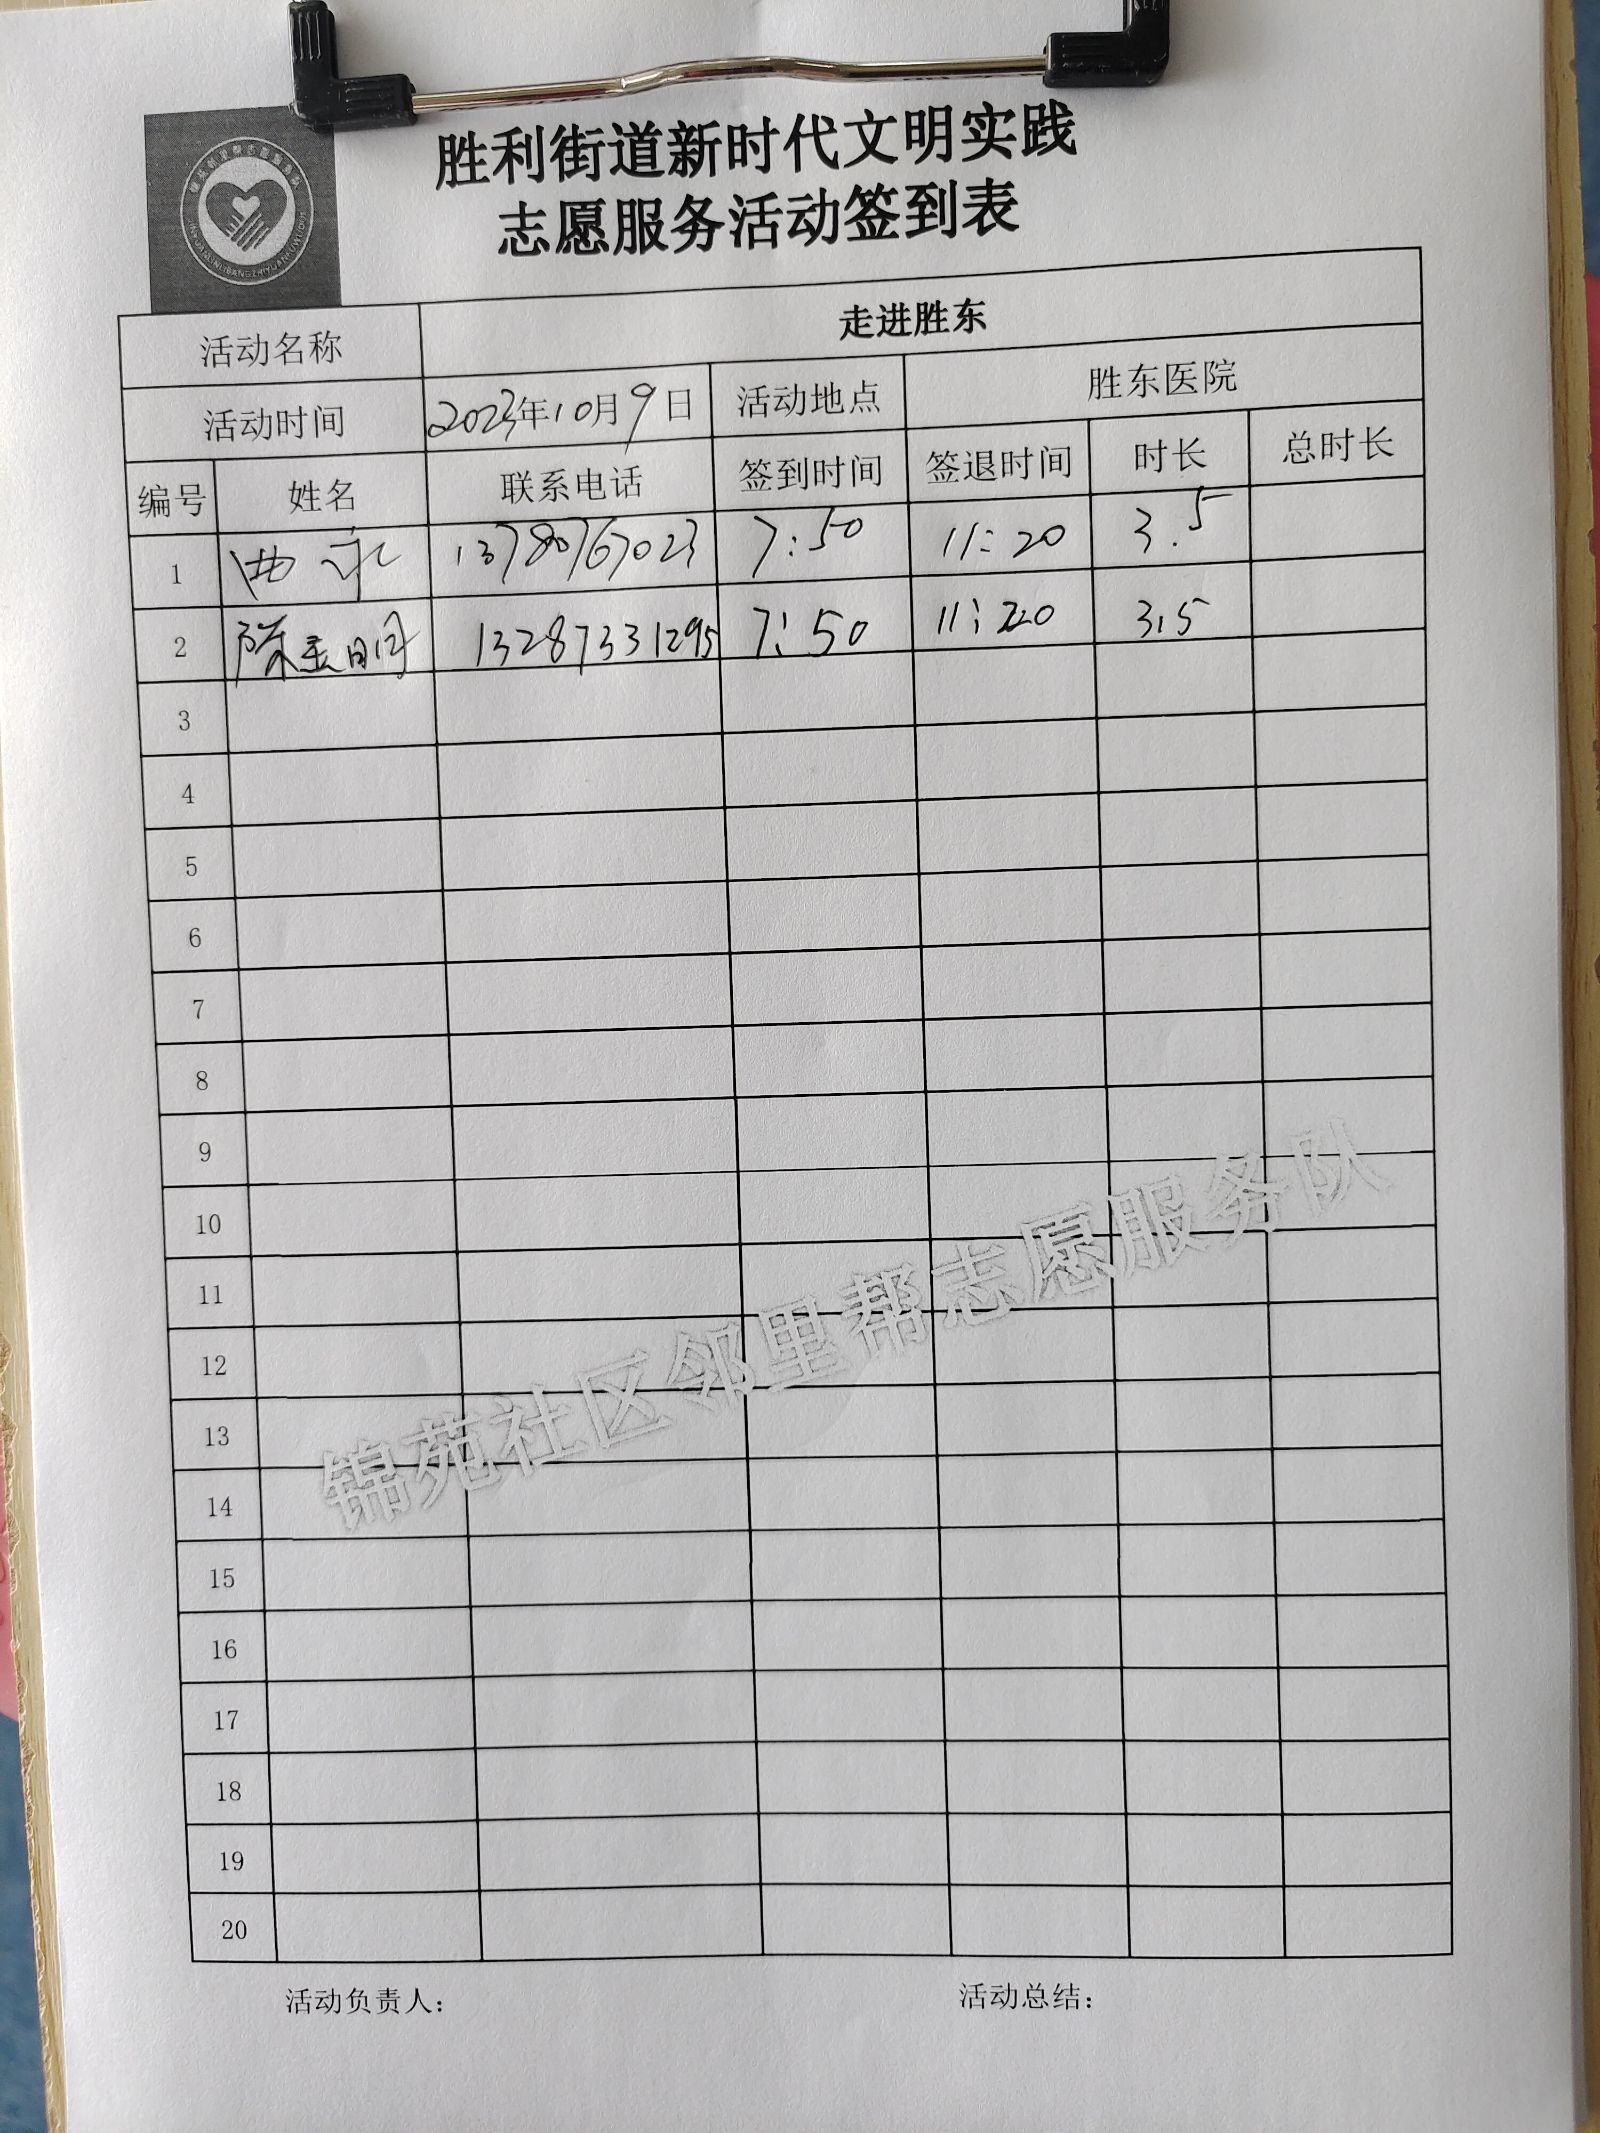 胜利街道新时代文明实践
志愿服务活动签到表
活动名称 走进胜东
活动时间 2023年10月9日 活动地点 胜东医院
编号 姓名 联系电话 签到时间 签退时间 时长 总时长
1 13780767023 7:50 11:20 3.5
2 13287331295 7:50 11:20 3.5
3
4
5
6
7
8
9
10
11
12
13
14
15
16
17
18
19
20
锦苑社区邻里帮志愿服务队
活动负责人: 活动总结: